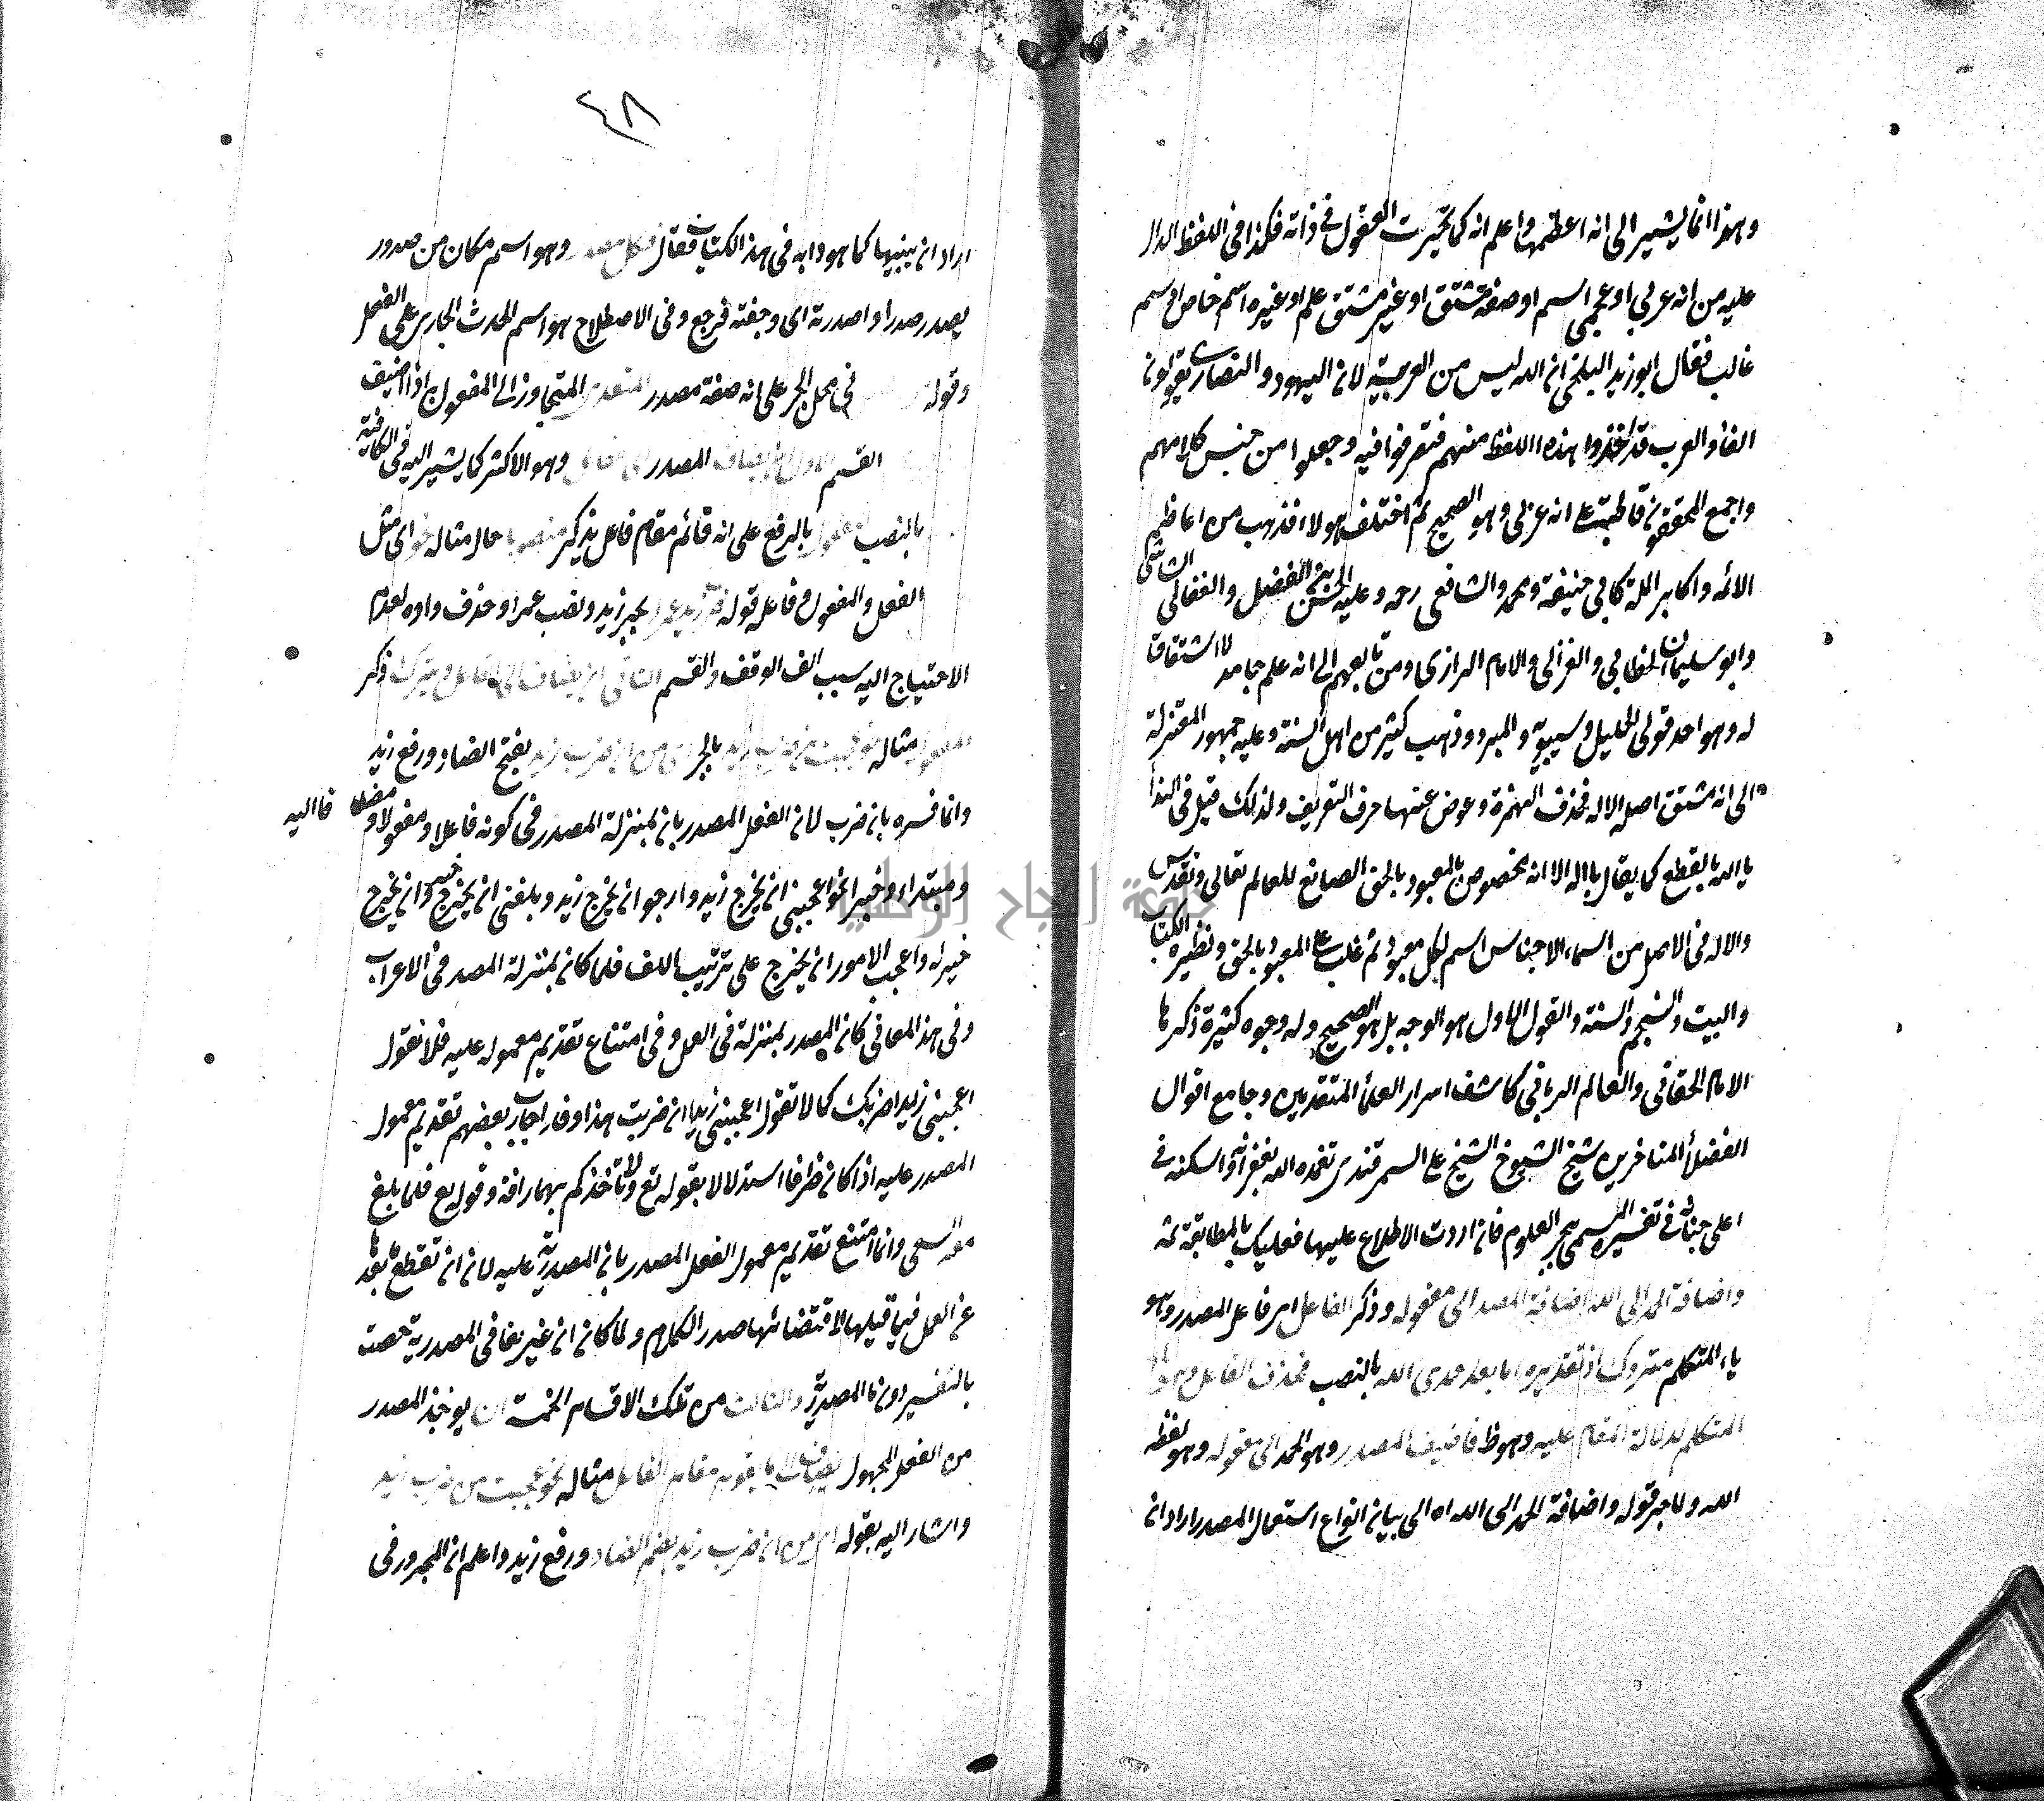 وهذا انما يشير الى انه اعظمها واعلم انه كما تحيرت العقول في ذاته فكذا في اللفظ الدال
عليه من انه عربي او عجمي اسم او صفة مشتق او غير مشتق علم او غيره اسم خاص او اسم
غالب فقال ابو زيد البلخي ان الله ليس من العربية لان اليهود والنصارى يقولون
العرب قد اخذوا هذه اللفظ منهم فتعرفوا فيه وجعلوا من جنس كلامهم
واجمع المحققون قاطبة على انه عربي وهو الصحيح ثم اختلف هولاء فذهب من اعاظم
الائمه واكابر الملة كابي حنيفة ومحمد والشافعي رحمه وعليه الحسين بن الفضل والقفال الشاشى
وابو سليمان الخطابي والغزالى والامام الرازى ومن تابعهم الى انه علم جامد لا اشتقاق
له وهو احد قولى الخليل وسيبويه والمبرد وذهب كثير من اهل السنة وعليه جمهور المعتزلة
الى انه مشتق اصله الاله فحذف الهمزة وعوض عنها حرف التعريف ولذلك قيل في الندا
يا الله بالقطع كما يقال يا اله الا انه مخصوص بالمعبود بالحق الصانع للعالم تعالى وتقدس
والاله في الاصل من اسماء الاجناس اسم لكل معبود ثم غلب على المعبود بالحق ونظيره الكتاب
والبيت والنجم والسنة والقول الاول هو الوجه بل هو الصحيح وله وجوه كثيرة ذكرها
الامام الحقاني والعالم الرباني كاشف اسرار العلماء المتقدمين وجامع اقوال
الفضلاء المتاخرين شيخ الشيوخ الشيخ على السمرقندى تغمده الله بغفرانه واسكنه في
اعلى جنانه في تفسيره المسمى ببحر العلوم فان اردت الاطلاع عليها فعليك بالمطالعة ثمه
واضافة الحمد الى الله اضافة المصدر الى مفعوله وذكر الفاعل اى فاعل المصدر وهو
ياء المتكلم متروك اذ تقديره اما بعد حمدى الله بالنصب فحذف الفاعل وهو
المتكلم لدلالة المقام عليه وهو ظ فاضيف المصدر وهو الحمد الى مفعوله وهو لفظه
الله ولما جر قوله واضافة الحمد الى الله اه الى بيان انواع استعمال المصدر اراد ان
٤٨
اراد ان يبنيها كما هو دابه في هذا الكتاب فقال وكل مصدر وهو اسم مكان من صدور
يصدر صدرا واصدرته اى رجعته فرجع وفي الاصطلاح هو اسم الحدث الجارى على الفعل
وقوله في محل الجر على انه صفة مصدر المتعدى المتجاوز الى المفعول اذا اضيف
القسم الاول ان يضاف المصدر الى الفاعل وهو الاكثر كما يشير اليه في الكافية
بالنصب بالرفع على انه قائم مقام فاعل يذكر منصوبا حال مثاله نحو اى مثل
الفعل والمفعول وفاعله قوله زيد عمرا بجر زيد ونصب عمرا وحذف واوه لعدم
الاحتياج اليه سبب الف الوقف والقسم الثاني ان يضاف الى الفاعل ويترك ذكر
المفعول مثاله نحو عجبت من ضرب زيد بالجر اى من ان ضرب زيد بفتح الضاد ورفع زيد
وانما فسره بان ضرب لان الفعل المصدر بان بمنزلة المصدر في كونه فاعلا ومفعولا ومضافا اليه
ومبتداء وخبرا نحو اعجبنى ان يخرج زيد وارجو ان يخرج زيد وبلغنى ان يخرج وان يخرج
خير له واعجب الامور ان يخرج على ترتيب اللف فلما كان بمنزلة المصدر في الاعراب
وفي هذا المعاني كان المصدر بمنزلة في العمل وفي امتناع تقديم معموله عليه فلا نقول
اعجبنى زيدا ضربك كما لا تقول اعجبنى زيدا ان ضربت هذا وقد اجاب بعضهم تقديم معمول
المصدر عليه اذا كان ظرفا استدلالا بقوله تع ولا تاخذكم بهما رافة وقوله تع فلما بلغ
معه السعى وانما امتنع تقديم معمول الفعل المصدر بان المصدرية عليه لان ان تقطع ما بعدها
عن العمل فيما قبلها لاقتضائها صدر الكلام ولما كان ان غير في المصدرية خصت
بالتفسير دون ما المصدرية والثالث من تلك الاقسام الخمسة ان يوخذ المصدر
من الفعل المجهول فيضاف الى ما يقوم مقام الفاعل مثاله نحو عجبت من ضرب زيد
واشار اليه بقوله اى من ان ضرب زيد بضم الضاد ورفع زيد واعلم ان المجرور في